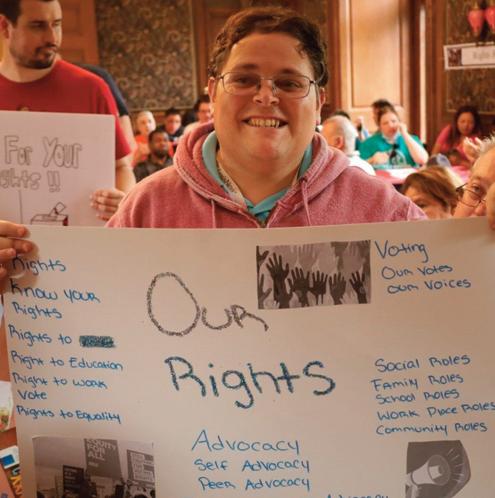 For Your
Rights !!
Rights
Know your
Rights
Rights to
Right to Education
Right to work
Vote
Rights to Equality
Our
Rights
Voting
Our Votes
Our Voices
Social Roles
Family Roles
School Roles
Work Place Roles
Community Roles
EQUITY
FOR
ALL
Advocacy
Self Advocacy
Peer Advocacy
Advocacy